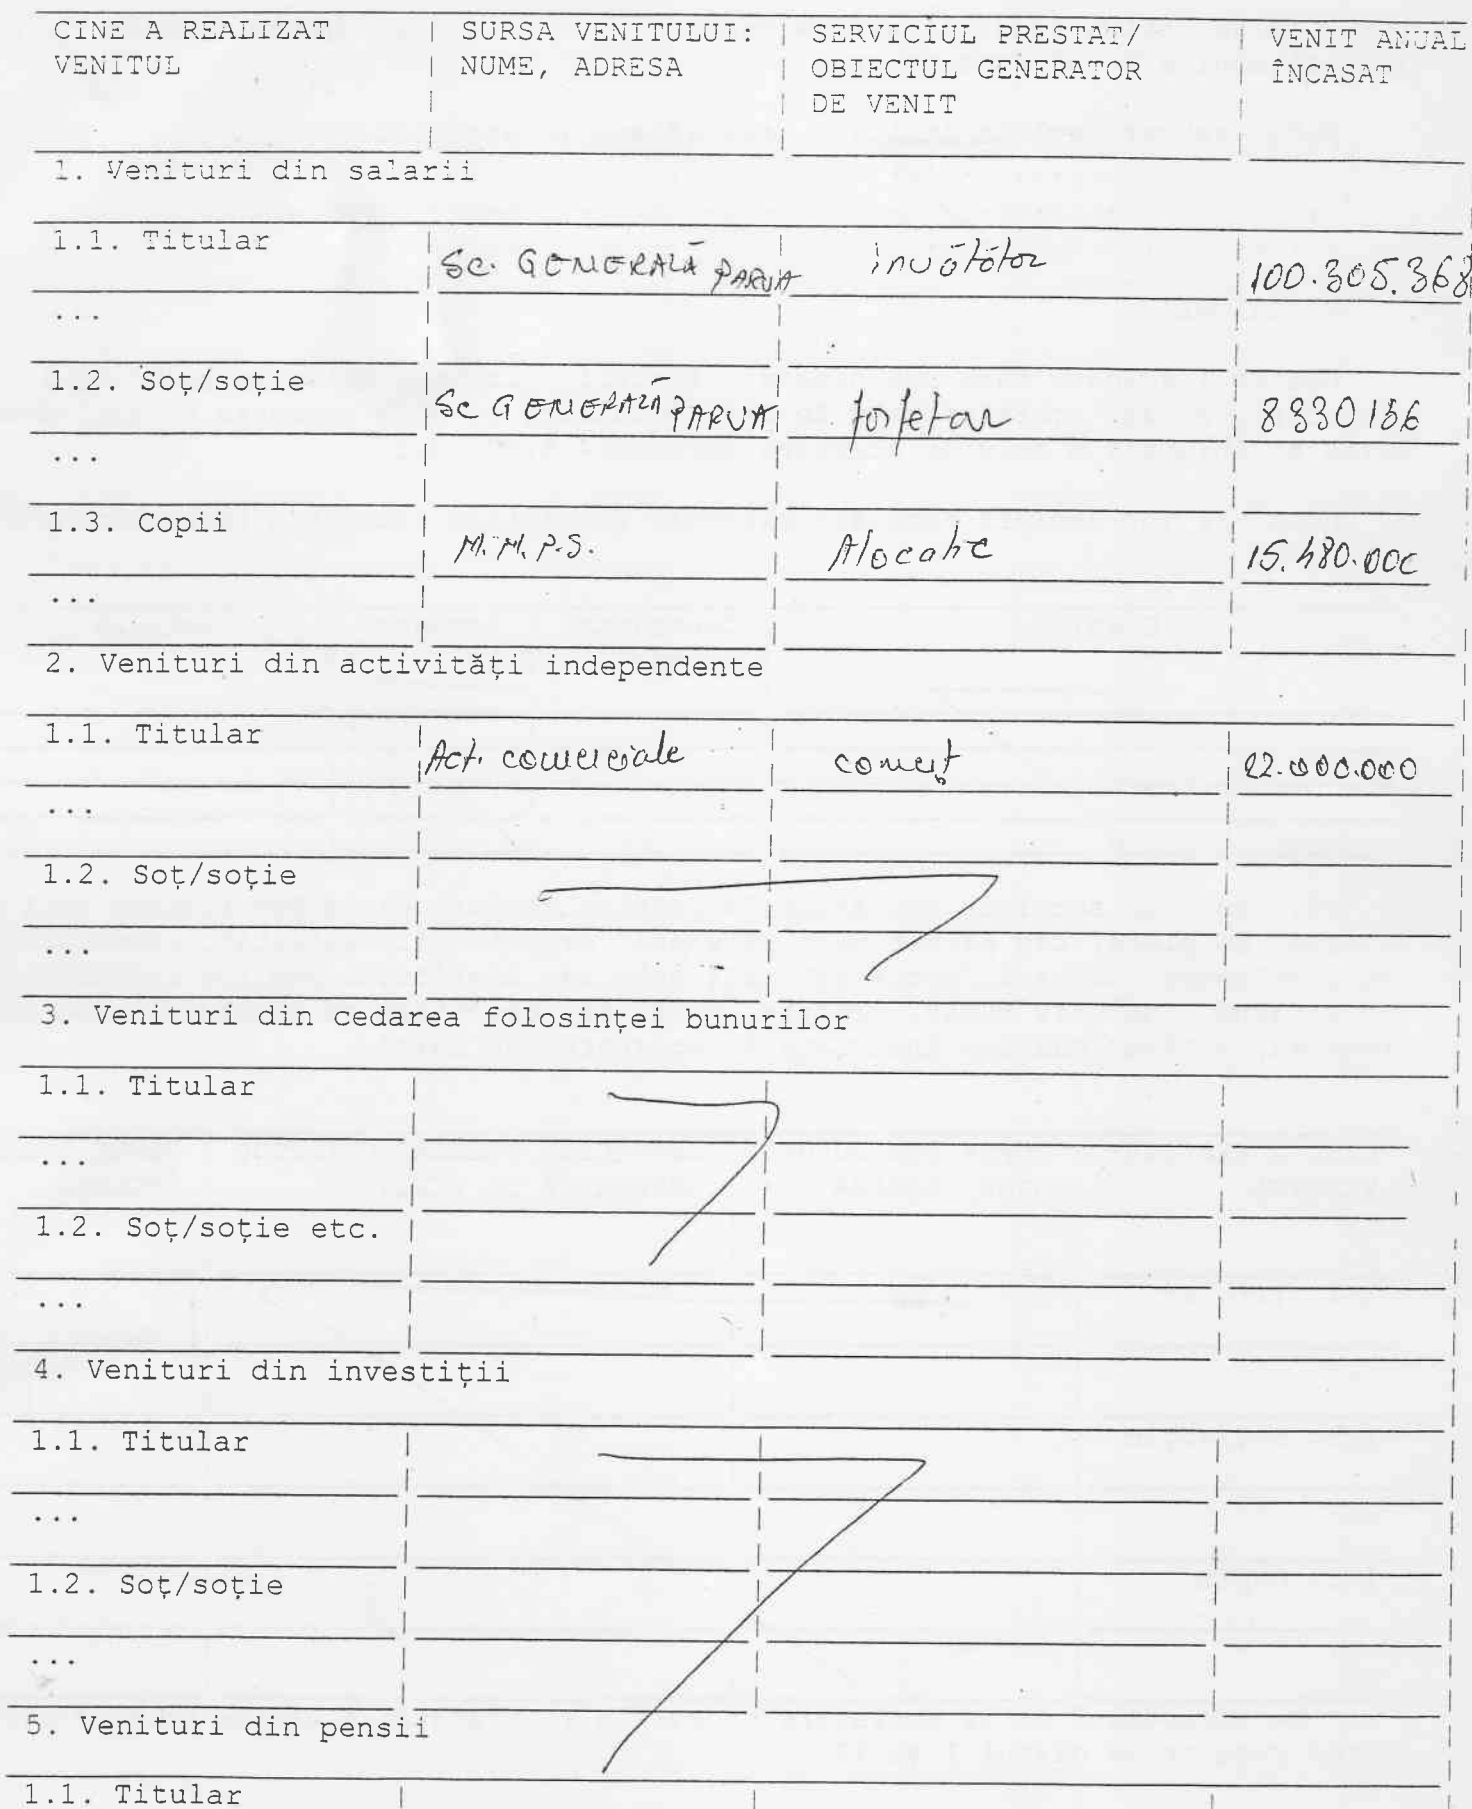 CINE A REALIZAT | SURSA VENITULUI: | SERVICIUL PRESTAT/ | VENIT ANUAL
VENITUL | NUME, ADRESA | OBIECTUL GENERATOR | ÎNCASAT
DE VENIT
1. Venituri din salarii
1.1. Titular
Sc. GENERALĂ PARVA învățător 100.305.368
...
1.2. Soț/soție
Sc GENERALĂ PARVA forfetar
...
1.3. Copii
M.M.P.S. Alocație
...
2. Venituri din activități independente
1.1. Titular
Act. comerciale comerț 22.000.000
...
1.2. Soț/soție
...
3. Venituri din cedarea folosinței bunurilor
1.1. Titular
...
1.2. Soț/soție etc.
...
4. Venituri din investiții
1.1. Titular
...
1.2. Soț/soție
...
5. Venituri din pensii
1.1. Titular